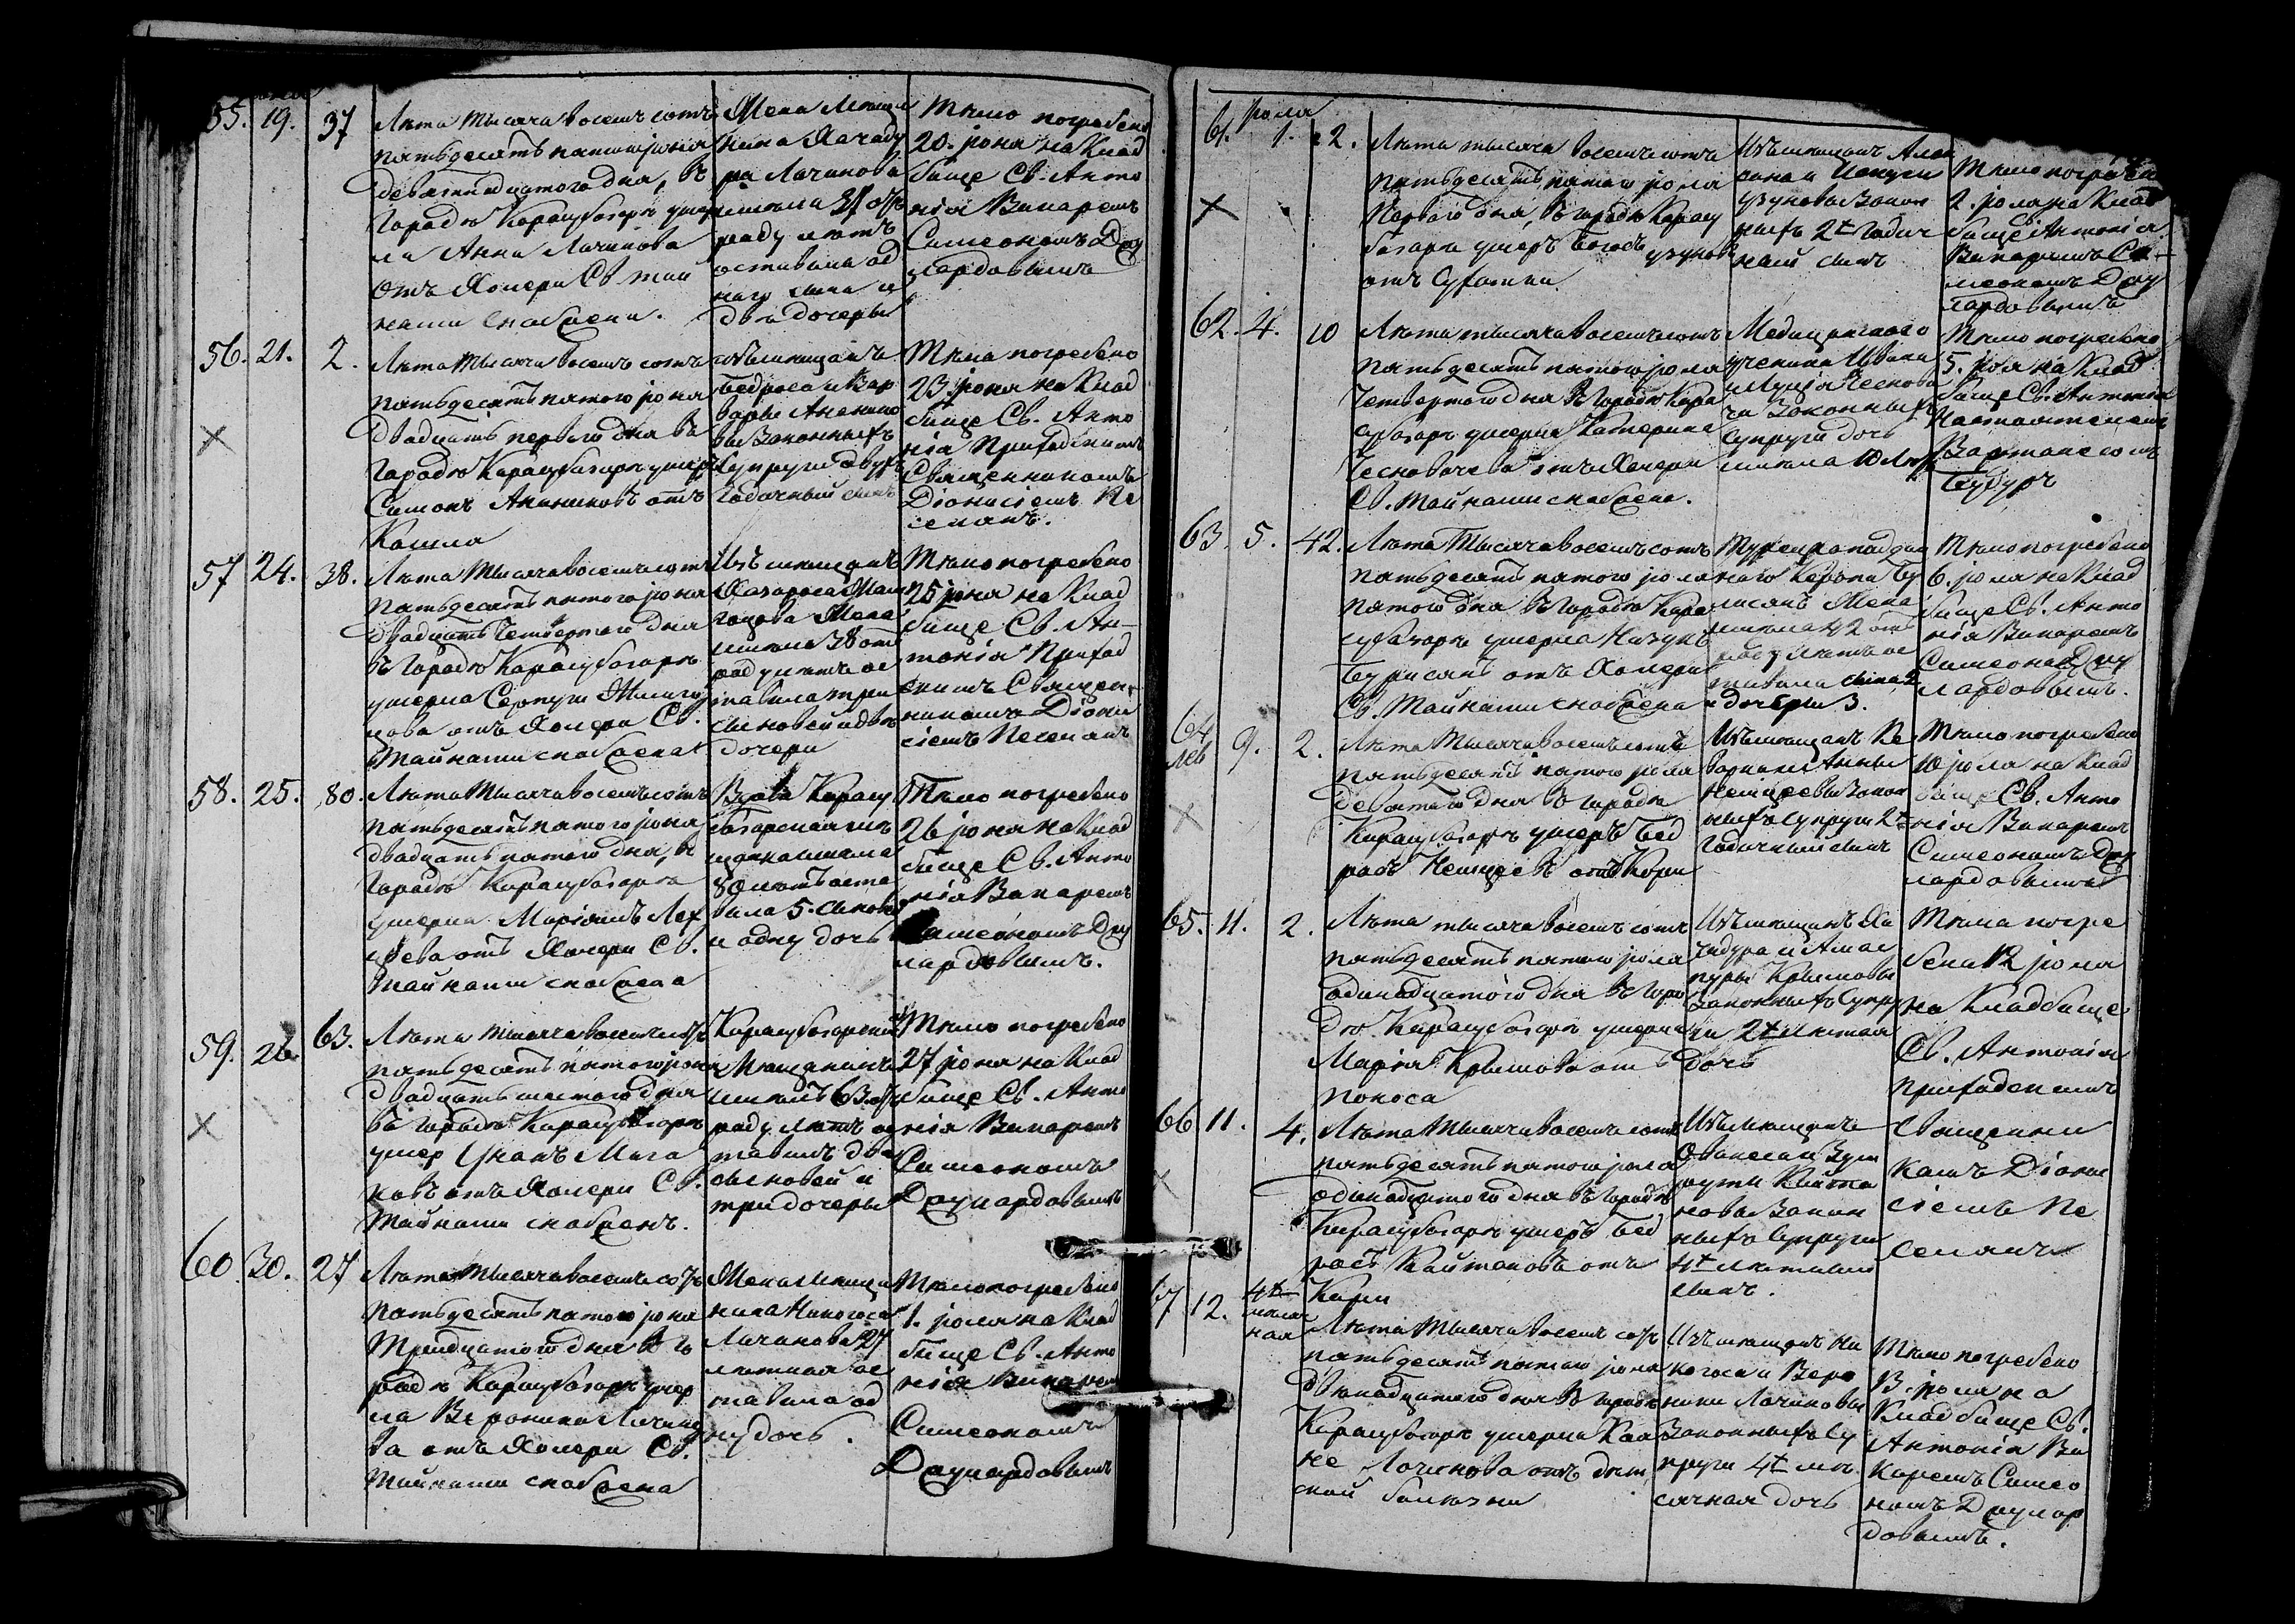 55. 19. 37
Лѣта тысяча восемь сотъ
пятьдесятъ пятаго іюня
девятнадцатаго дня, въ
городѣ Карасубазарѣ умер
ла Анна Лачинова
отъ Холеры Св. тай
нами снабжена.
Жена мѣщан
нина Хачаду
ра Лачинова
имѣла 37 отъ
роду лѣтъ
оставила од
ного сына и
двѣ дочеры
Тѣло погребено
20. іюня на Клад
бище Св. Анто
нія Викаремъ
Симеономъ Доу
лардовымъ
56. 21. 2.
Лѣта тысяча восемь сотъ
пятьдесятъ пятаго іюня
двадцать перваго дня въ
городѣ Карасубазарѣ умеръ
Симонъ Ананиковъ отъ
Кашля
изъ мѣщанъ
Бедроса и Вар
вары Ананико
вы Законныхъ
Супруги двухъ
годочный сынъ
Тѣла погребено
23 іюня на Клад
бище Св. Анто
нія Приходскимъ
Священникомъ
Діонисіемъ Пе
семянъ.
57 24. 38.
Лѣта тысяча восемь сотъ
пятьдесятъ пятаго іюня
двадцать четвертаго дня
въ городѣ Карасубазарѣ
умерла
отъ Холеры Св.
тайнами снабжена
Изъ мѣщанъ
Жена
имѣла 38 отъ
роду лѣтъ ос
тавила три
сыновей и двѣ
дочери
Тѣло погребено
25 іюня на Клад
бище Св. Ан-
тонія Приход
скимъ Священ-
никомъ Діони
сіемъ Песемянъ
58. 25. 80.
Лѣта тысяча восемь сотъ
пятьдесятъ пятаго іюня
двадцать пятаго дня, въ
городѣ Карасубазарѣ
умерла Маріямъ
отъ Холеры Св.
тайнами снабжена
Вдова Карасу
базарская мѣ
щанка имѣла
80 лѣтъ оста
вила 5. сыновъ
и одну дочь
Тѣло погребено
26 іюня на Клад
бище Св. Анто
нія Викаремъ
Симеономъ Доу
лардовымъ.
59. 26. 63.
Лѣта тысяча восемь сотъ
пятьдесятъ пятаго іюня
двадцать шестаго дня
въ городѣ Карасубазарѣ
умер
отъ Холеры Св.
тайнами снабженъ.
Карасубазарскій
Мѣщанинъ
имѣлъ 63 отъ
роду лѣтъ ос
тавилъ два
сыновей и
три дочеры
Тѣло погребено
27 іюня на Клад
бище Св. Анто
нія Викаремъ
Симеономъ
Доулардовымъ
60. 30. 27
Лѣта тысяча восемь сотъ
пятьдесятъ пятаго іюня
тридцатаго дня въ го
родѣ Карасубазарѣ умер
ла Вероника Лачино
ва отъ Холеры Св.
тайнами снабжена
Жена мѣщан
нина Никогоса
Лачинова 27
лѣтная ос
тавила од
ну дочь.
Тѣло погребено
1. іюля на Клад
бище Св. Анто
нія Викарем
Симеономъ
Доулардовымъ
іюля
61. 1. 2.
Лѣта тысяча восемь сотъ
пятьдесятъ пятаго іюля
Перваго дня, въ городѣ Карасу
базарѣ умеръ Богосъ Узунов
отъ Сухотки.
Изъ мѣщанъ
Узуновы Закон
ныхъ 2хъ годич
ный сынъ
Тѣло погребен
2. іюля на Клад
бище Антонія
Викаремъ Си-
меономъ Доу
лардовымъ
62. 4. 10
Лѣта тысяча восемь сотъ
пятьдесятъ пятаго іюля
Четвертаго дня въ городѣ Кара
субазарѣ умерла Катерина
Чесновачева отъ Холеры
Св. тайнами снабжена.
Медицинскаго
ученика Ивана
Чеснова
ча Законныхъ
Супруги дочь
имѣла 10 лѣт
Тѣло погребено
5. іюля на Клад
бище Св. Антонія
Настоятелемъ
Вартанесомъ
63. 5. 42.
Лѣта тысяча восемь сотъ
пятьдесятъ пятаго іюля
пятаго дня въ городѣ Кара
субазарѣ умерла
отъ Холеры
Св. тайнами снабжена
Жена
имѣла 42 отъ
роду лѣтъ ос
тавила сына 2
и дочеры 3.
Тѣло погребено
6. іюля на Клад
бище Св. Анто
нія Викаремъ
Симеоном Доу
лардовымъ.
64 9. 2.
Лѣта тысяча восемь сотъ
пятьдесятъ пятаго іюля
девятаго дня въ городѣ
Карасубазарѣ умеръ Бед
росъ Немцевъ отъ Кори
Изъ мѣщанъ Ке
ворка и Анны
Немцевы Закон
ныхъ Супруги 2хъ
годочный сынъ
Тѣло погребено
10 іюля на Клад
бище Св. Анто
нія Викаремъ
Симеономъ Доу
лардовымъ
65. 11. 2.
Лѣта тысяча восемь сотъ
пятьдесятъ пятаго іюля
одинадцатаго дня въ горо
дѣ Карасубазарѣ умерла
Марія Крымова отъ
поноса
Изъ мѣщанъ Ха
чадура и Алма
Крымовы
Законныхъ Супру
ги 2хъ лѣтная
дочь
Тѣла погре
бена 12 іюля
на Кладбище
Св. Антонія
Приходскимъ
Священни
комъ Діони
сіемъ Пе
семянъ
66 11. 4.
Лѣта тысяча восемь сотъ
пятьдесятъ пятаго іюля
одинадцатаго дня въ городѣ
Карасубазарѣ умеръ Бед
росъ Кайтановъ отъ
Кори
Изъ мѣщанъ
Ованеса и
новы Закон
ныхъ Супруги
4хъ лѣтный
сынъ.
67 12. 4хъ
мѣсяч
ная
Лѣта тысяча восемь сотъ
пятьдесятъ пятаго іюля
двѣнадцатаго дня въ городѣ
Карасубазарѣ умерла
Лачинова отъ дѣт
ской болѣзни
Изъ мѣщанъ Ни
когоса и Веро
ники Лачиновы
Законныхъ Су
пруги 4хъ мѣ
сячная дочь
Тѣло погребено
13. іюля на
Кладбище Св.
Антонія Ви
каремъ Симео
номъ Доулар
довымъ.